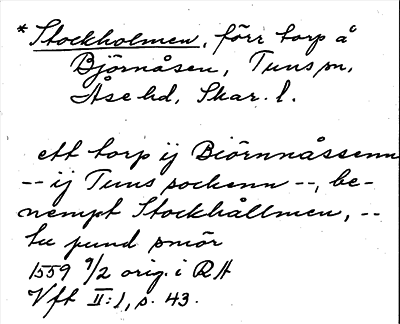 * Stockholmen, förr torp å
Björnåsen, Tuns sn,
Åse hd, Skar. l.
ett torp ij Biörnnåssenn
-- ij Tuns sockenn --, be-
nempt Stockhållmen, --
tu pund smör
1559 9/2 orig. i RA
Vft II:1, s. 43.